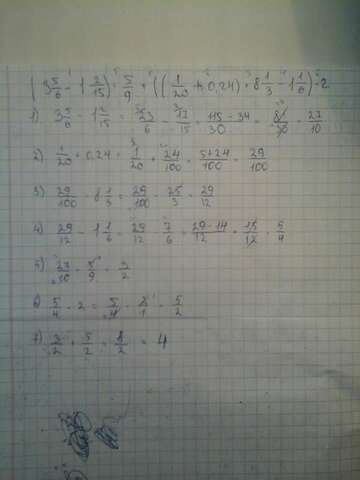 (3 5/6 - 1 2/15) · 5/9 + ((1/20 + 0,24) · 8 1/3 - 1 1/6) · 2
1) 3 5/6 - 1 2/15 = 23/6 - 17/15 = 115 - 34/30 = 81/30 = 27/10
2) 1/20 + 0,24 = 1/20 + 24/100 = 5+24/100 = 29/100
3) 29/100 · 8 1/3 = 29/100 · 25/3 = 29/12
4) 29/12 - 1 1/6 = 29/12 - 7/6 = 29-14/12 = 15/12 = 5/4
5) 27/10 · 5/9 = 3/2
6) 5/4 · 2 = 5/4 · 2/1 = 5/2
7) 3/2 + 5/2 = 8/2 = 4